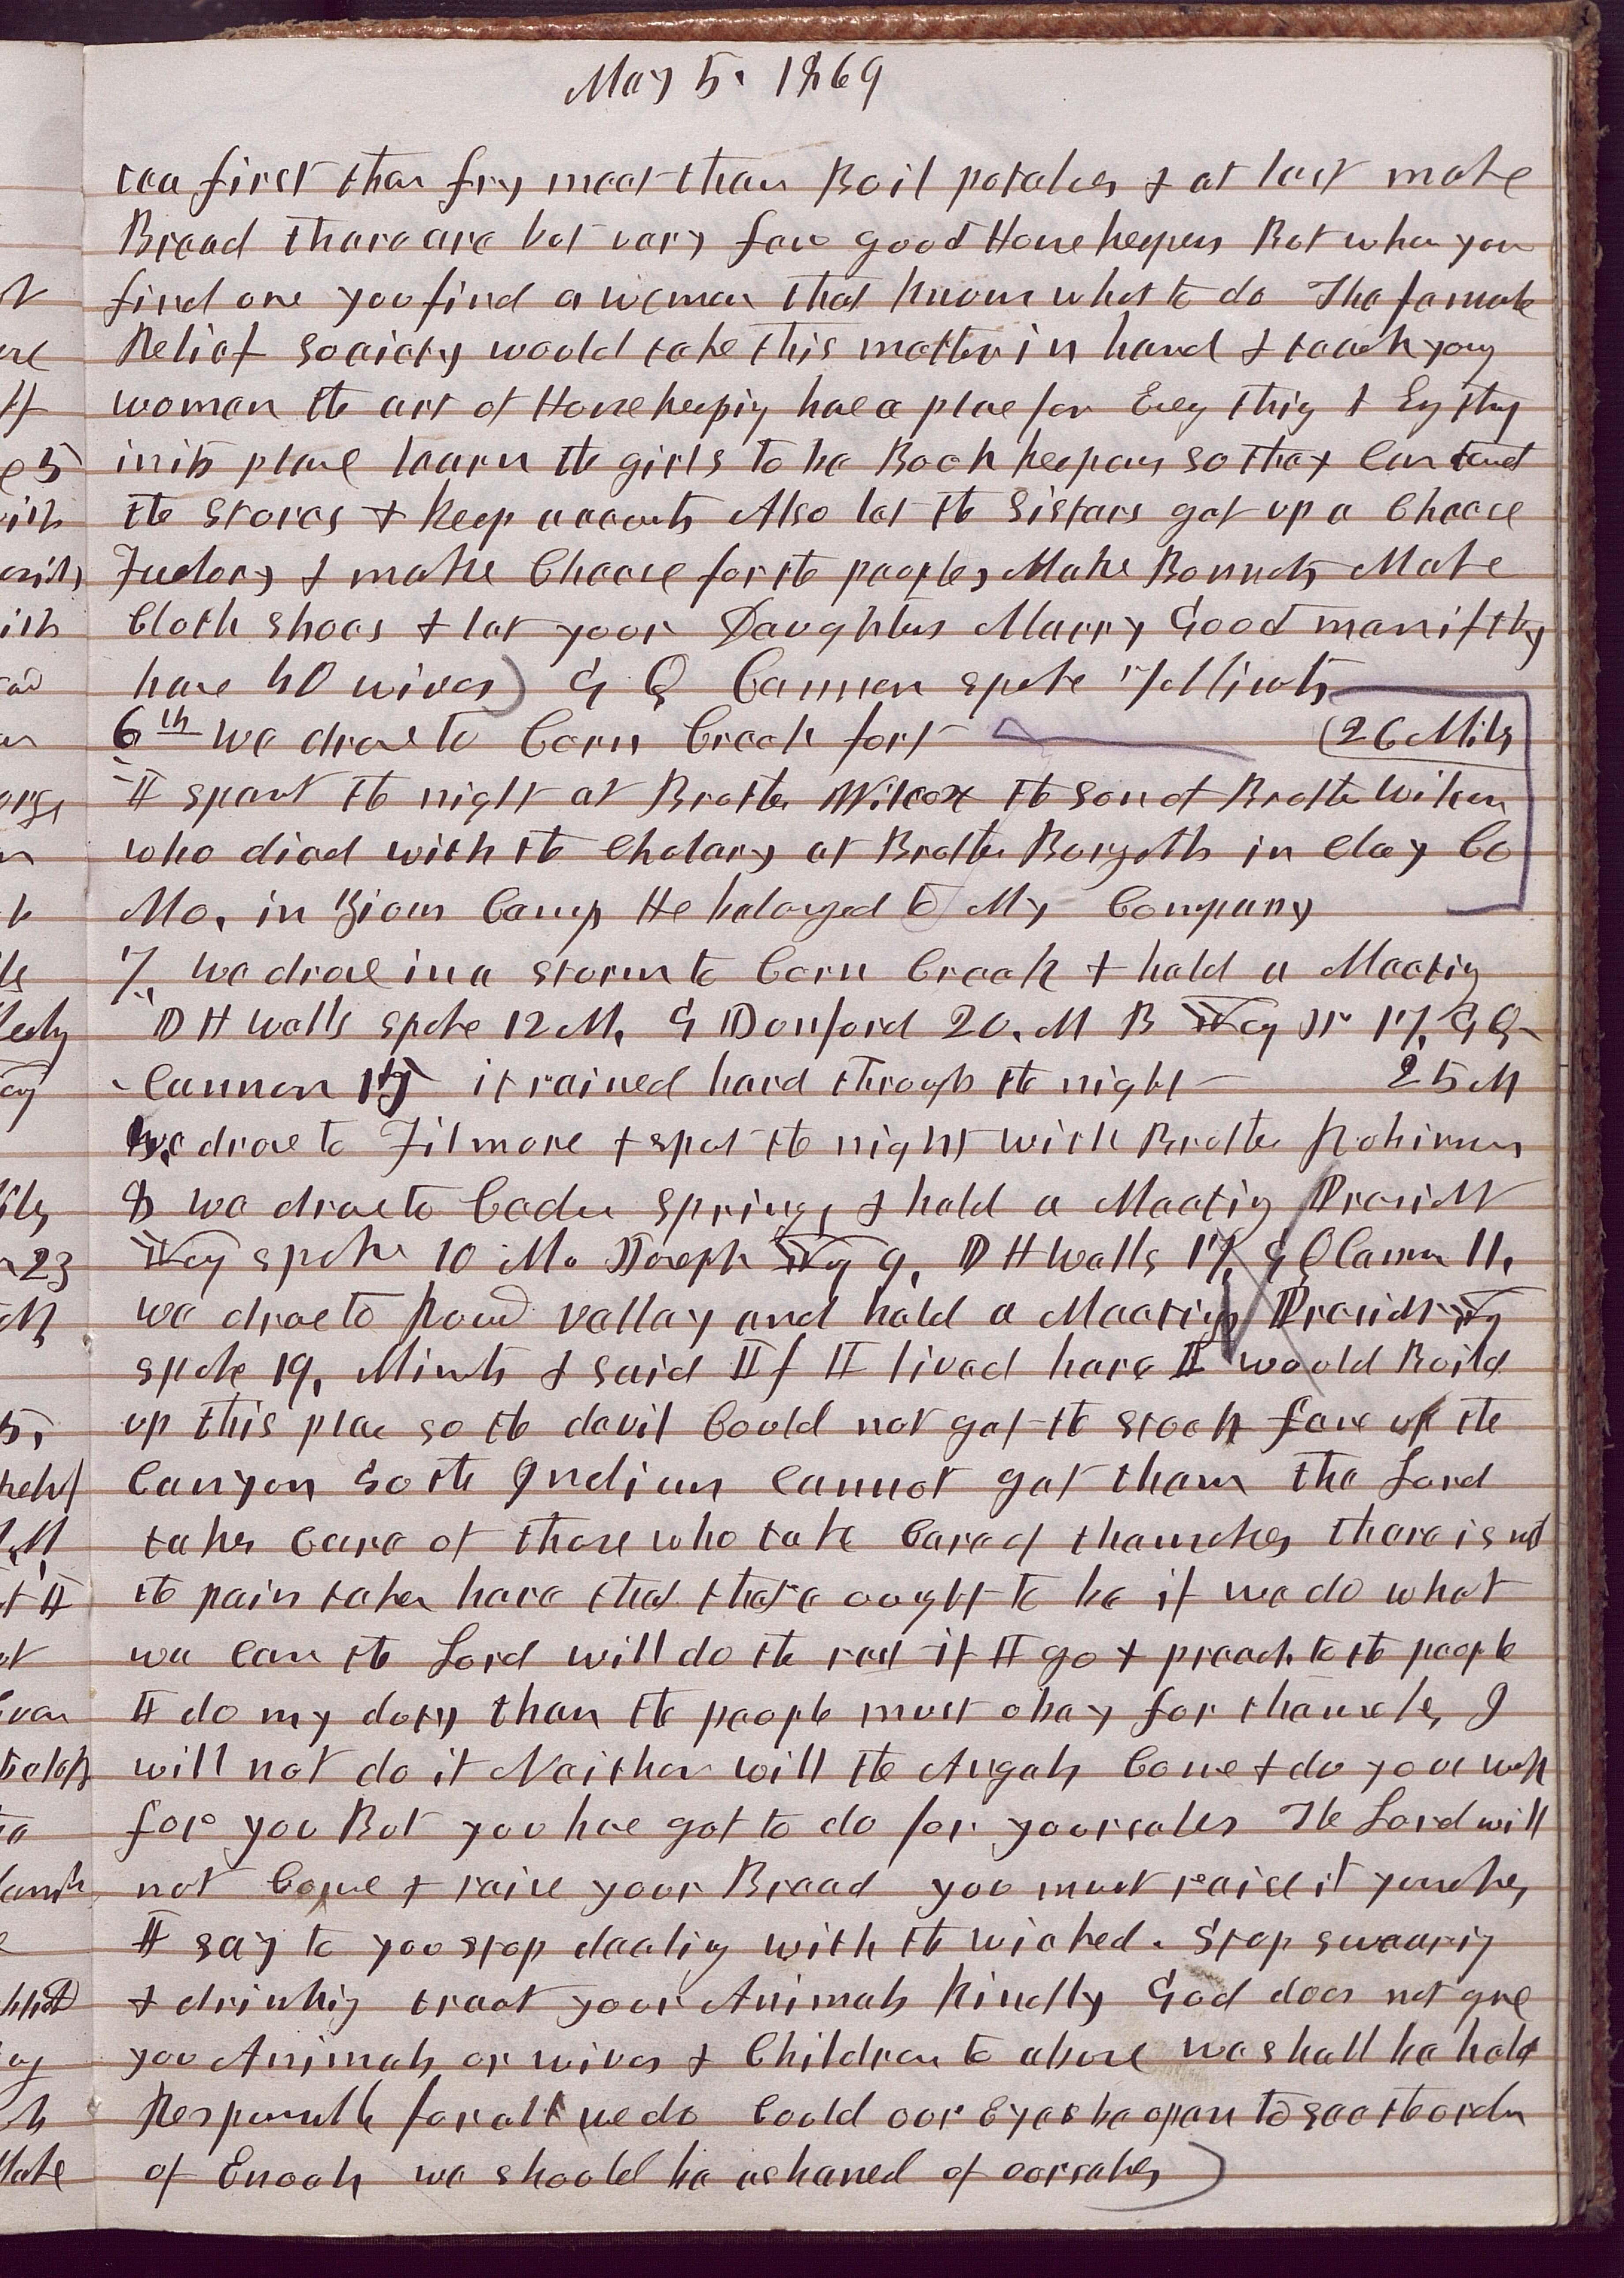 May 5. 1869
tea first then fry meat then Boil potatoes & at last make
Bread there are but very few good Housekeepers But when you
find one you find a woman that knows what to do The female
Relief Society would take this matter in hand & teach yong
women the art of Housekeeping have a place for Evry thing & Evry thing
in its place learn the girls to be Book keepers so they Can tend
the stores & keep accounts Also let the Sisters get up a Cheese
Factory & make Cheese for the people, Make Bonnets Make
Cloth shoes & let your Daughters Marry Good men if they
have 40 wives) G Q Cannon spoke 17 Minuts
6th we drove to Corn Creek fort (26 Miles
I spent the night at Brother Wilcox the son of Brother Wilcox
who died with the Cholary at Brother Burgetts in Clay Co
Mo, in Zions Camp He belonged to My Company
7. we drove in a storm to Corn Creek & held a Meeting
D H Wells spoke 12 M, G Dunford 20. M B Yg Jr 17, G Q
Cannon 17 it rained hard through the night 25 M
we drove to Filmore & spet the night with Brother Robinson
8 we drove to Cedar Springs & held a Meeting Presidet
Yg spoke 10 M. Joseph Yg 9, D H Wells 17, G Q Cannon 11,
we drove to Round valley and held a Meeting Presidet Yg
spoke 19, Minuts & said If I lived here I would Build
up this place so the devil Could not get the stock fence up the
Canyon So the Indian Cannot get them the Lord
takes Care of those who take Care of themselves there is not
the pain taken here that there ought to be if we do what
we can the Lord will do the rest if I go & preach to the people
I do my duty then the people must obay for themselves, I
will not do it Neither will the Angels Come & do your work
for you But you have got to do for yourselves The Lord will
not Come & raise your Bread you must raise it yourselves
I say to you stop dealing with the wicked. Stop swearing
& drinking treat your Animals kindly God does not give
you Animals or wives & Children to abuse we shall be held
Responsible for all we do Could our Eyes be open to see the order
of Enoch we should be ashamed of ourselves)